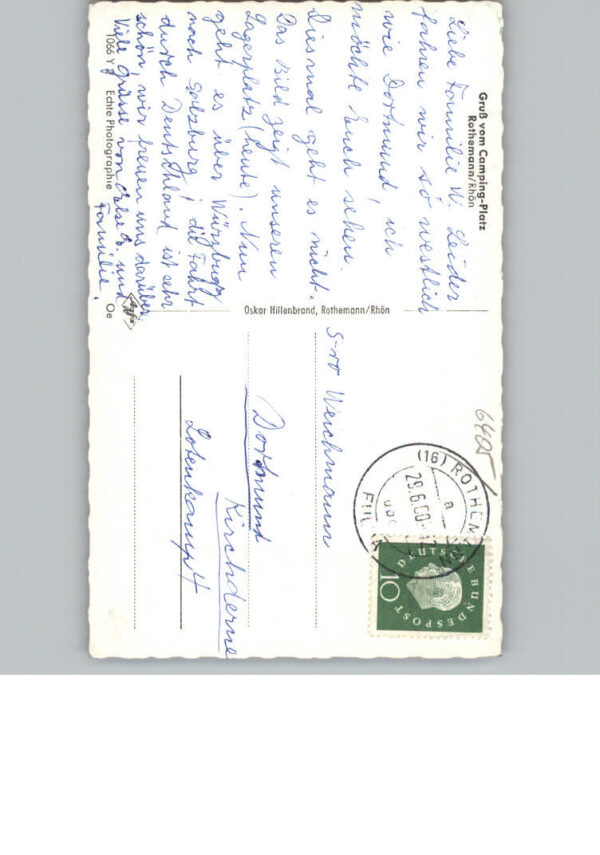 Gruß vom Camping-Platz
Rothemann/Rhön
Liebe Familie W. Leider
fahren wir so westlich
wie Dortmund, ich
möchte Euch sehen.
Diesmal geht es nicht.
Das Bild zeigt unseren
Lagerplatz (heute). Nun
geht es über Würzburg
nach Salzburg, die Fahrt
durch Deutschland ist sehr
schön, wir freuen uns darüber
Viele Grüsse von Else B. und
Familie.
1066 Y Echte Photographie Oe
Oskar Hillenbrand, Rothemann/Rhön
6405
(16) ROTHEM
a
29.6.60
FULDA
DEUTSCHE BUNDESPOST
10
Weichmann
Dortmund
Kirchderne
Lotenkamp